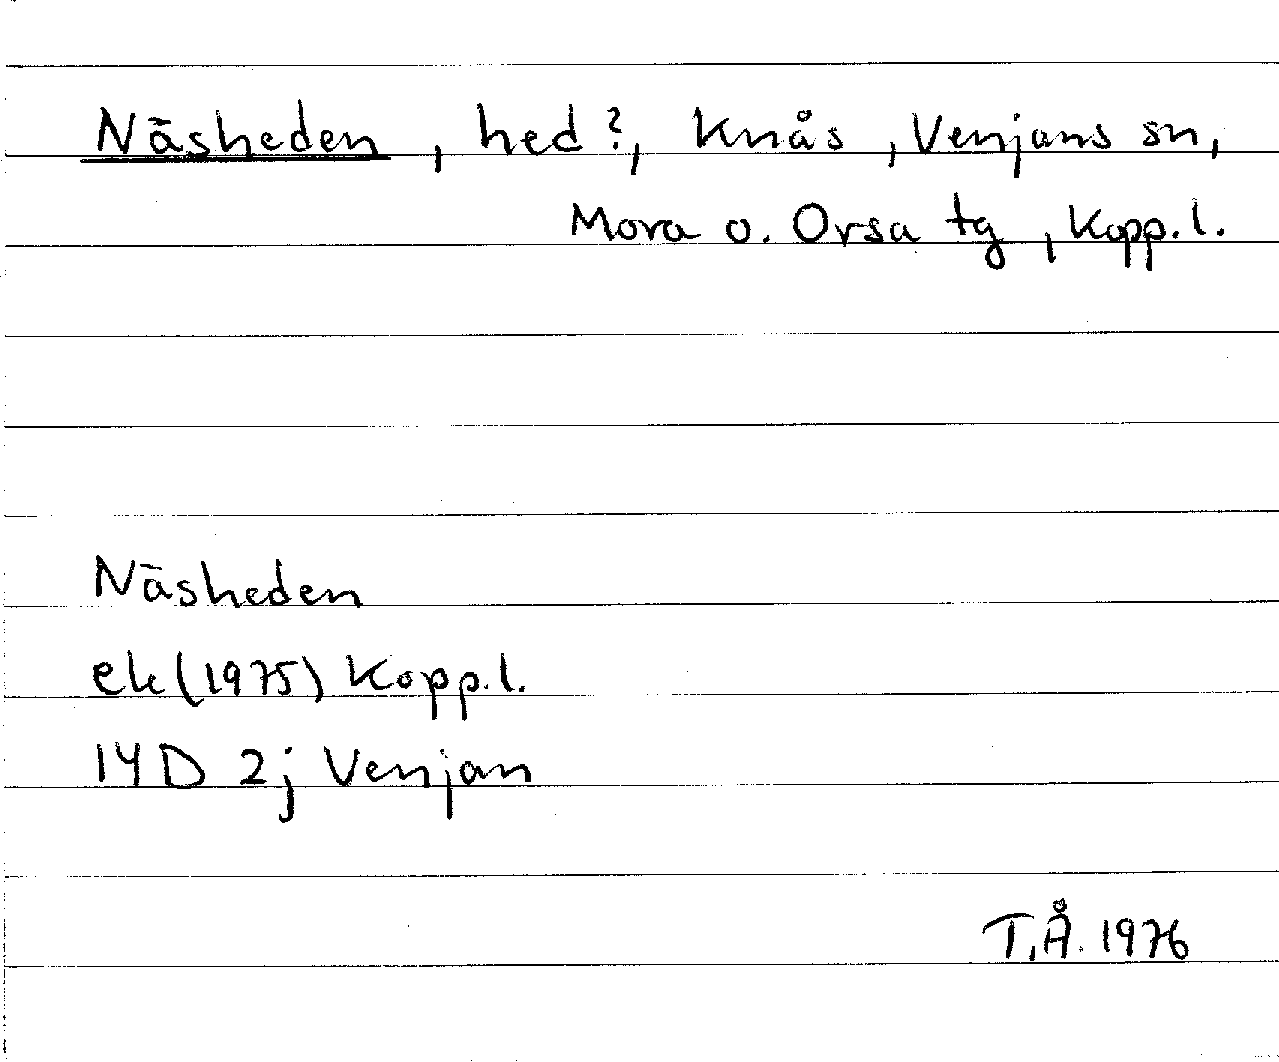 Näsheden, hed?, Knås, Venjans sn,
Mora o. Orsa tg, Kopp.l.
Näsheden
ek(1975) Kopp.l.
14D 2j Venjan
T.Å. 1976